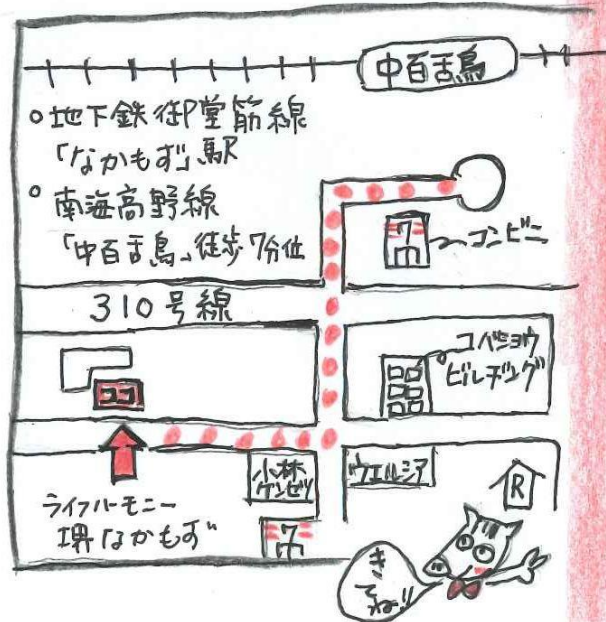 中百舌鳥
○地下鉄御堂筋線
「なかもず」駅
○南海高野線
「中百舌鳥」徒歩7分位
7
コンビニ
310号線
コバショウ
ビルヂング
ココ
小林
ケンセツ
ウエルシア
R
ライフハーモニー
堺なかもず
7
きてね!!